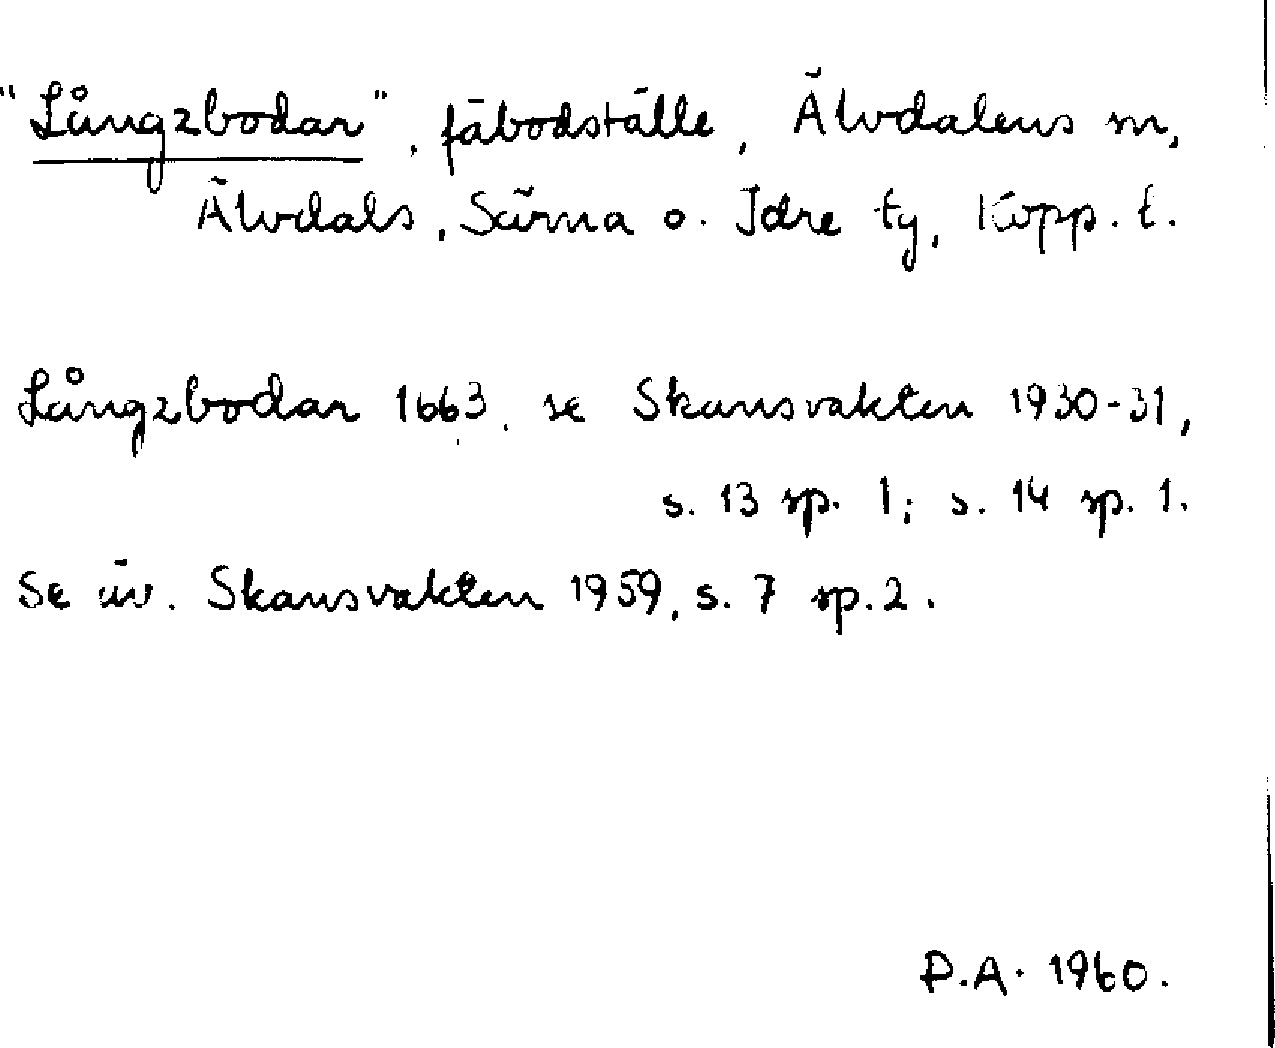 "Långzbodar", fäbodställe, Älvdalens sn,
Älvdals, Särna o. Idre tg, Kopp. l.
Långzbodar 1663, se Skansvakten 1930-31,
s. 13 sp. 1; s. 14 sp. 1.
Se äv. Skansvakten 1959, s. 7 sp. 2.
D.A. 1960.